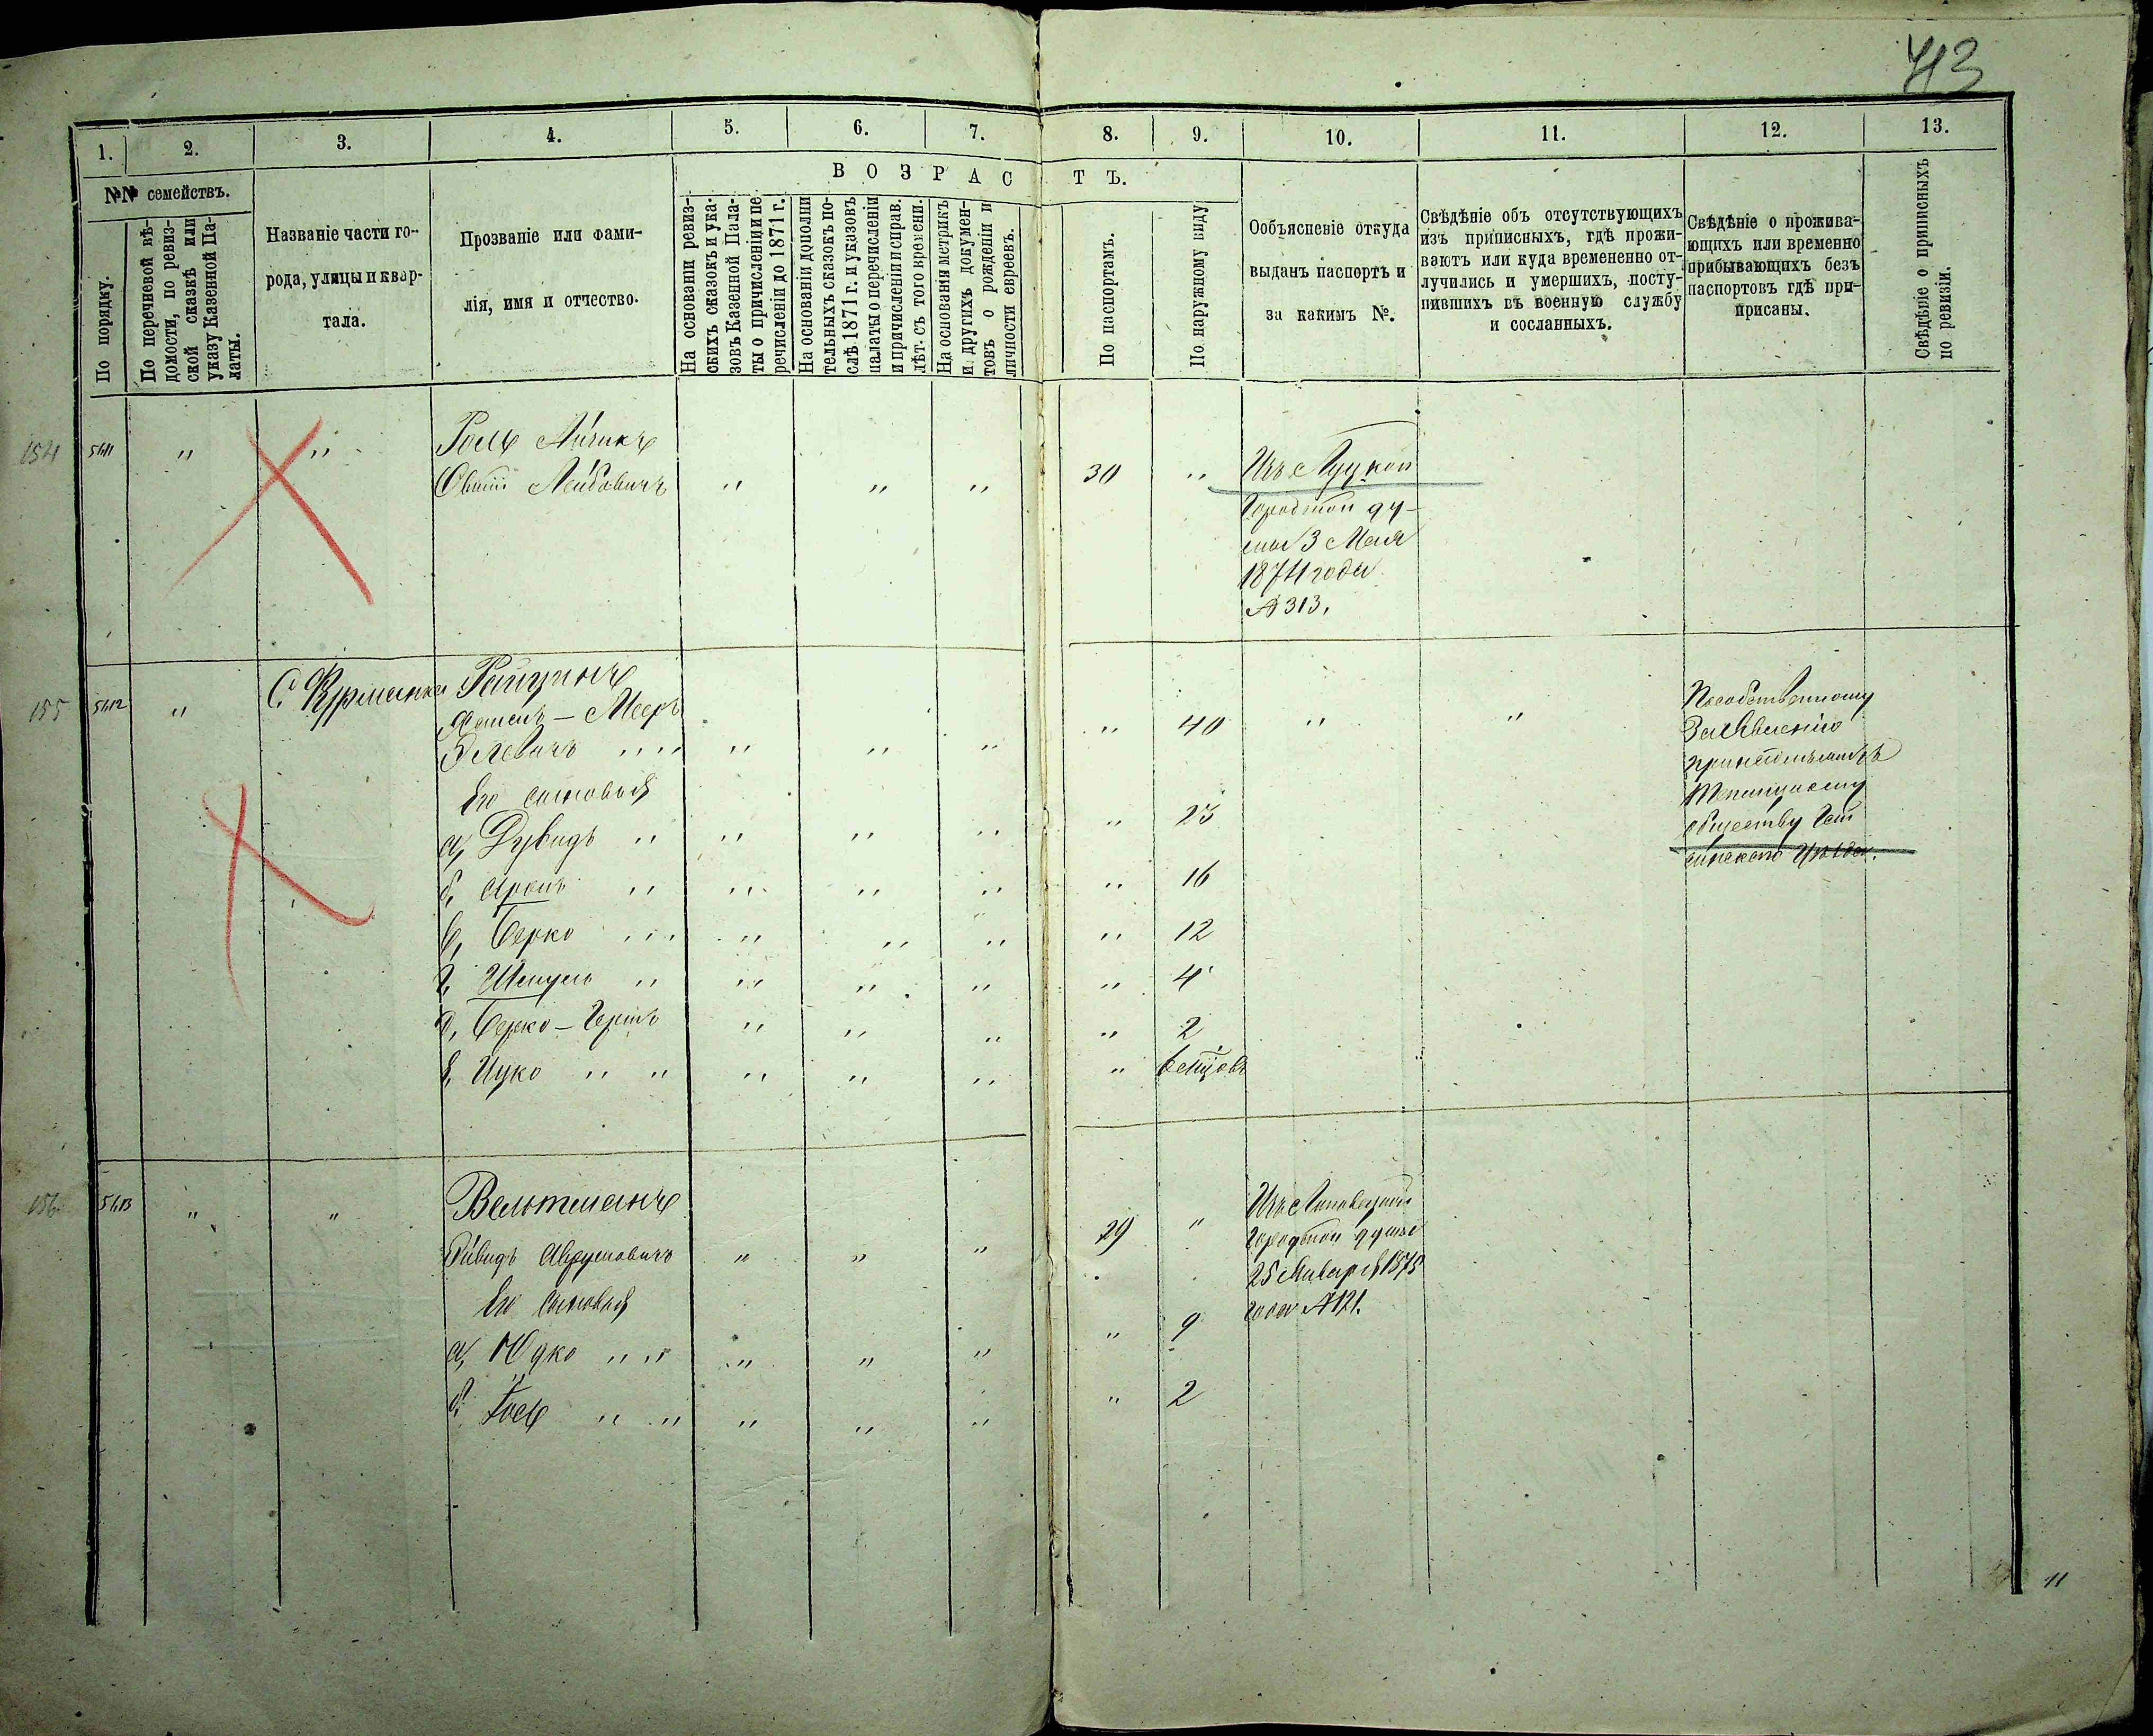 413
1. 2. 3. 4. 5. 6. 7. 8. 9. 10. 11. 12. 13.
№№ семействъ.
По порядку.
По перечневой вѣ-
домости, по ревиз-
ской сказкѣ или
указу Казенной Па-
латы.
Названіе части го-
рода, улицы и квар-
тала.
Прозваніе или фами-
лія, имя и отчество.
ВОЗРАСТЪ.
На основаніи ревиз-
скихъ сказокъ и ука-
зовъ Казенной Пала-
ты о причисленіи и пе
речисленіи до 1871 г.
На основаніи дополни
тельныхъ сказокъ по-
слѣ 1871 г. и указовъ
палаты о перечисленіи
и причисленіи и справ.
лѣт. съ того времени.
На основаніи метрикъ
и другихъ докумен-
товъ о рожденіи и
личности евреевъ.
По паспортамъ.
По наружному виду
Ообъясненіе откуда
выданъ паспортъ и
за какимъ №.
Свѣдѣніе объ отсутствующихъ
изъ приписныхъ, гдѣ прожи-
ваютъ или куда временено от-
лучились и умершихъ, посту-
пившихъ въ военную службу
и сосланныхъ.
Свѣдѣніе о прожива-
ющихъ или временно
прибывающихъ безъ
паспортовъ гдѣ при-
присаны.
Свѣдѣніе о приписныхъ
по ревизіи.
154 5611 " " Ицикъ
Лейбовичъ " " " 30 " Изъ Луцкой
Городской ду-
мы 3 Мая
1874 года
№ 313.
155 5612 " С. Курманка
Мееръ
" " " " 40 " "
Его сыновья
а, Дувидъ " " " " " 23
б, " " " " " 16
в, Берко " " " " " 12
г, Шмуль " " " " " 4
д, Берко-Гершъ " " " " 2
е, Ицко " " " " " "
По собственному
Заявленію
принадлежитъ
обществу
156 5613 " " Вельтманъ
Дивидъ Аврумовичъ " " " 29 " Изъ Липовецкой
городской думы
25 Января 1875
года № 121.
Его сыновья
а, Юдко " " " " " " 9
б, " " " " " " 2
11